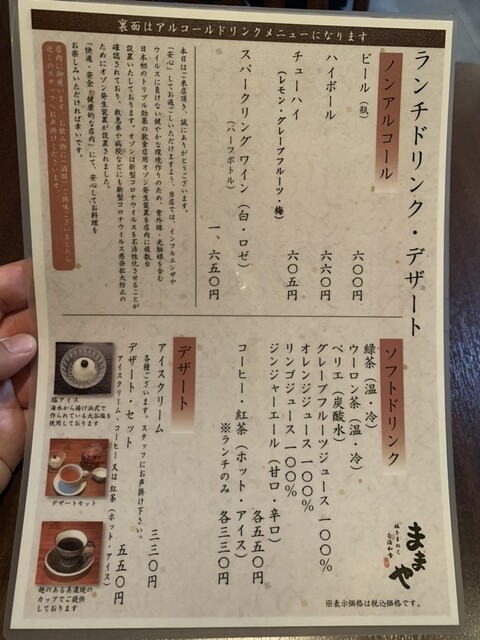 裏面はアルコールドリンクメニューになります
ランチドリンク・デザート
ノンアルコール
ビール（瓶）　六〇〇円
ハイボール　六六〇円
チューハイ　六〇五円
（レモン・グレープフルーツ・梅）
スパークリングワイン（白・ロゼ）　一、六五〇円
（ハーフボトル）
本日はご来店頂き、誠にありがとうございます。
「安心」してお過ごしいただけますよう、当店では、インフルエンザや
ウイルスに負けない健やかな環境作りのため、紫外線・光触媒を含む
日本初のトリプル効果の飲食店用オゾン発生装置を店内に複数台
設置いたしております。オゾンは新型コロナウイルスを不活性化させることが
確認されており、救急車や病院などにも新型コロナウイルス感染拡大防止の
ためにオゾン発生装置が設置されました。
「快適・安全・健康的な店内」にて、安心してお料理を
お楽しみいただければ幸いです。
ソフトドリンク
緑茶（温・冷）
ウーロン茶（温・冷）
ペリエ（炭酸水）
グレープフルーツジュース 一〇〇％
オレンジジュース 一〇〇％
リンゴジュース 一〇〇％
ジンジャーエール（甘口・辛口）
各五五〇円
コーヒー・紅茶（ホット・アイス）
※ランチのみ　各三三〇円
デザート
アイスクリーム　三三〇円
各種ございます。スタッフにお声掛け下さい。
デザート・セット　五五〇円
アイスクリーム・コーヒー又は紅茶（ホット・アイス）
塩アイス
海水から揚げ浜式で
作られている大谷塩を
使用しております
デザートセット
趣のある美濃焼の
カップでご提供
しております
ままや
※表示価格は税込価格です。